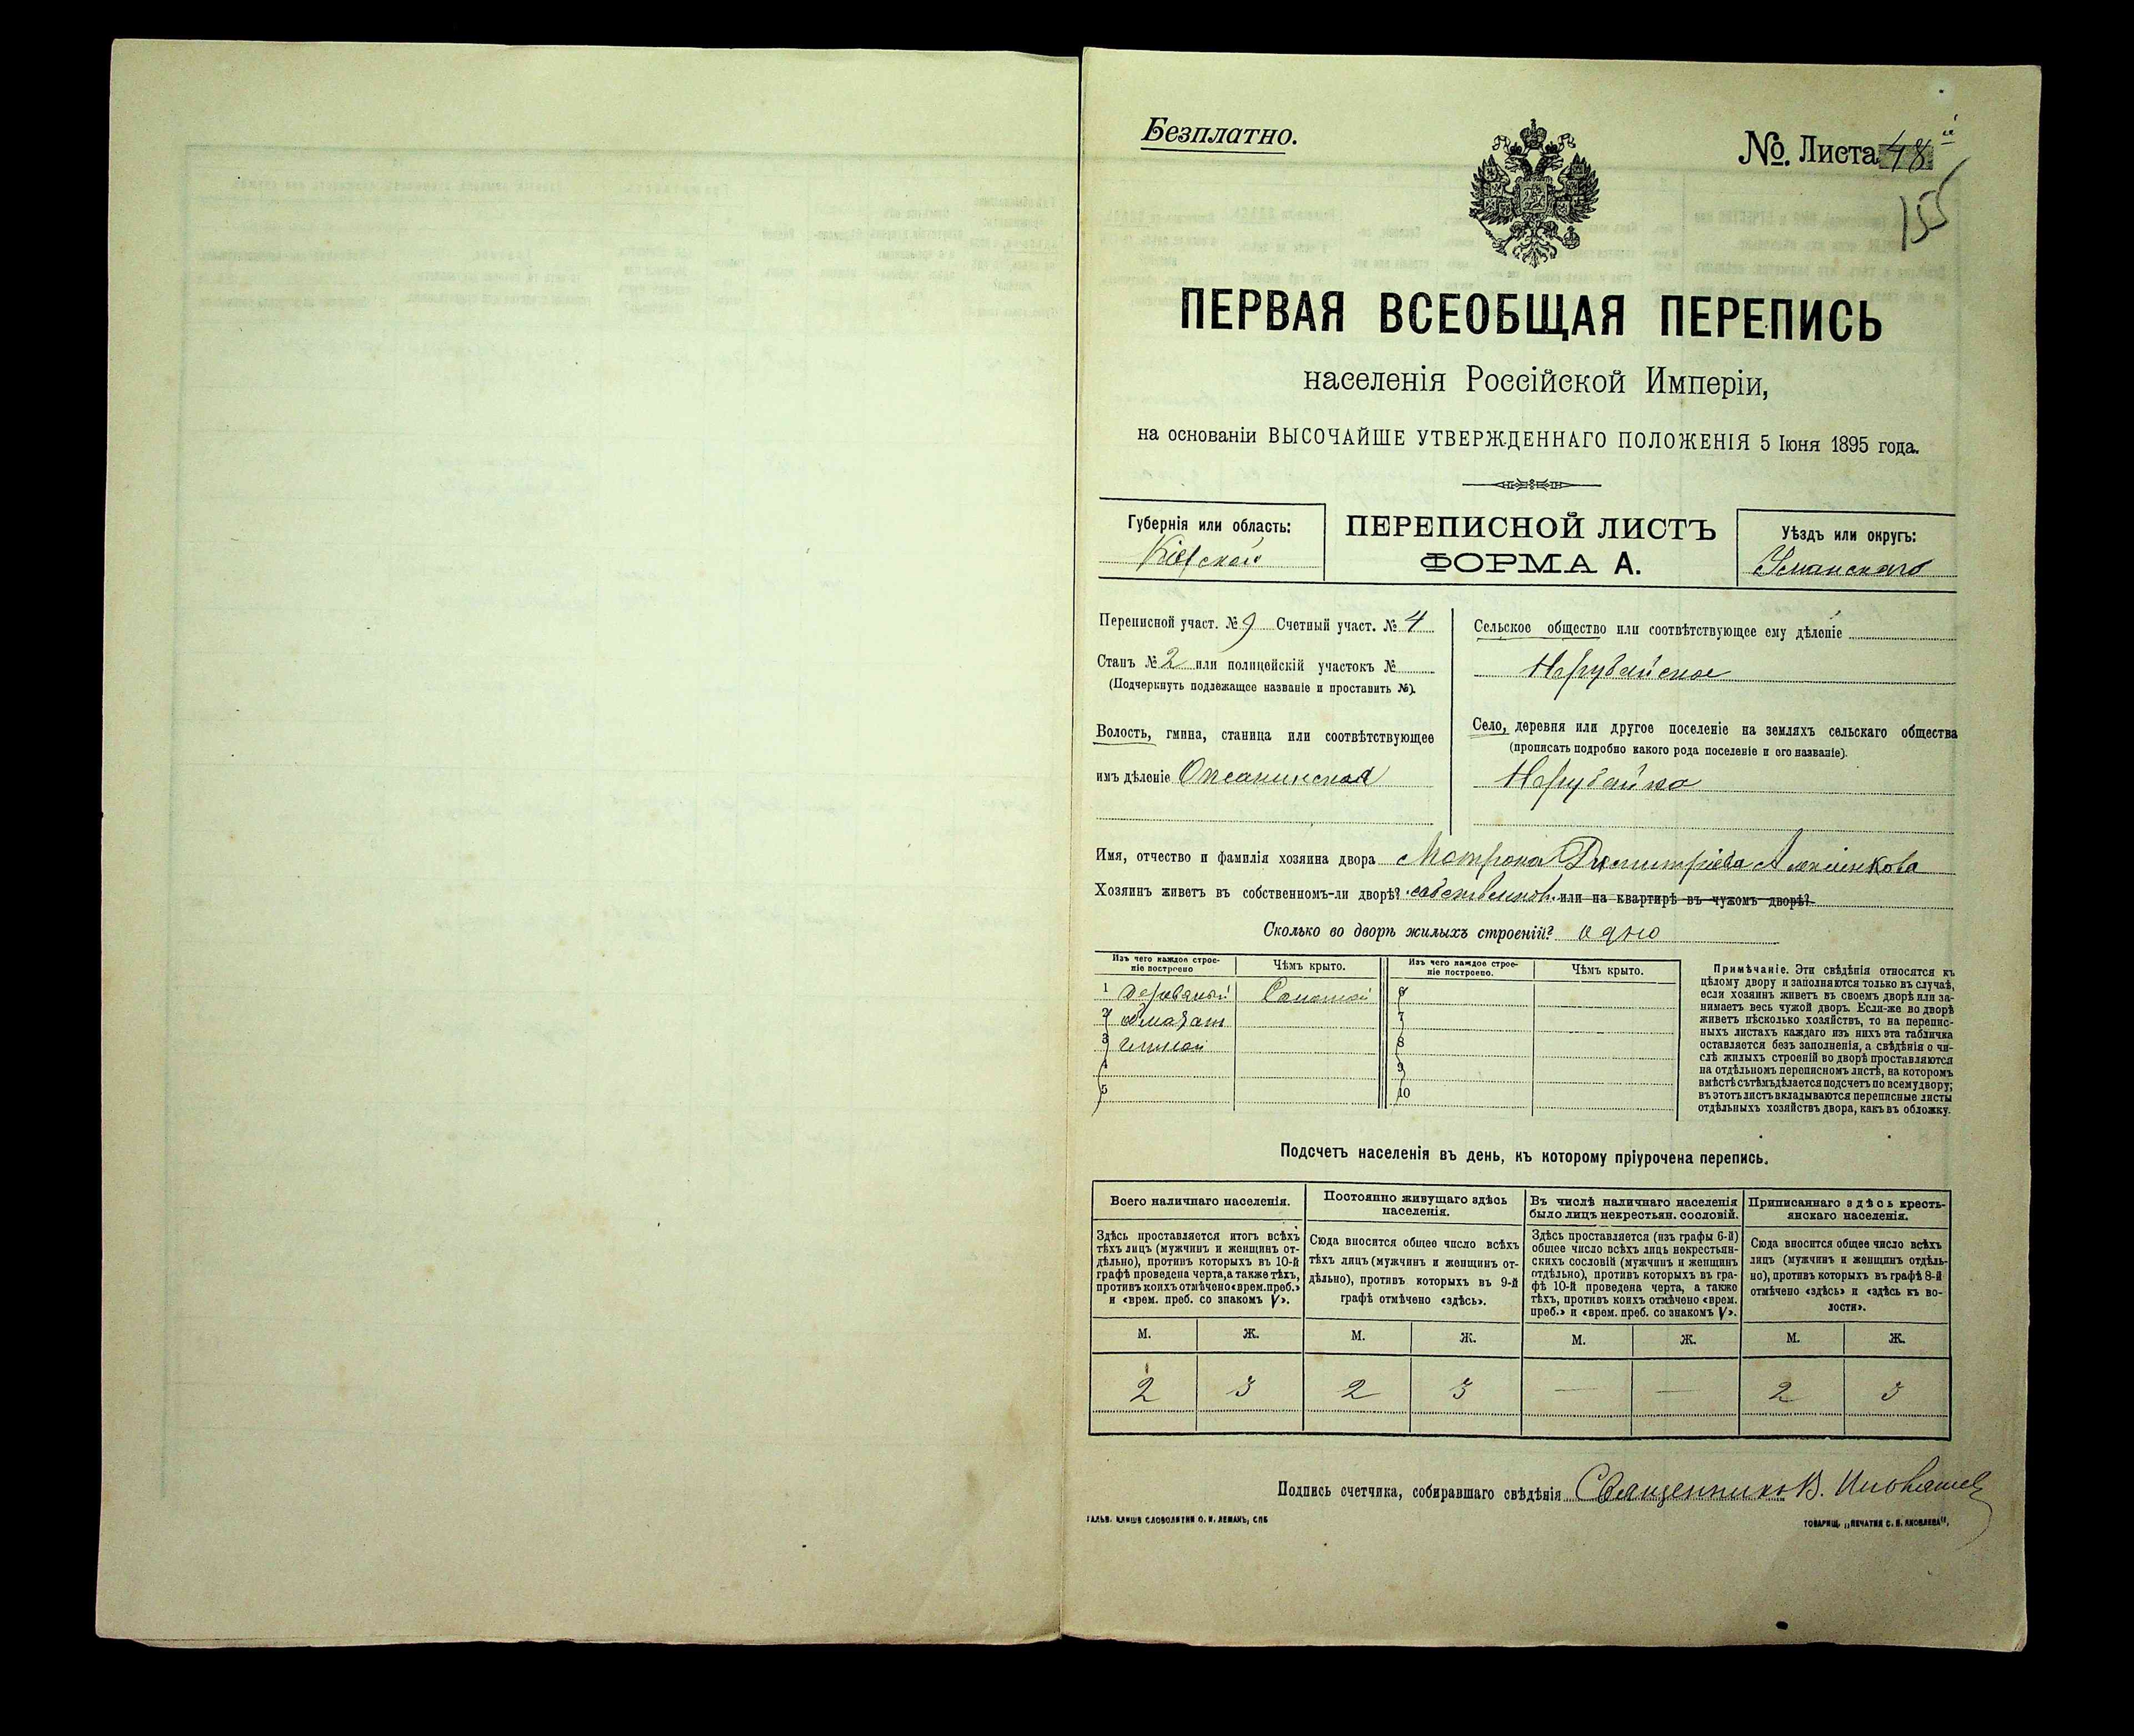 Безплатно.
№. Листа 48й
155
ПЕРВАЯ ВСЕОБЩАЯ ПЕРЕПИСЬ
населенія Россійской Имперіи,
на основаніи ВЫСОЧАЙШЕ УТВЕРЖДЕННАГО ПОЛОЖЕНІЯ 5 Іюня 1895 года.
Губернія или область:
Кіевской
ПЕРЕПИСНОЙ ЛИСТЪ
ФОРМА А.
Уѣздъ или округъ:
Уманскаго
Переписной участ. № 9 Счетный участ. № 4
Станъ № 2 или полицейскій участокъ №
(Подчеркнуть подлежащее названіе и проставить №).
Волость, гмина, станица или соотвѣтствующее
имъ дѣленіе Оксанинская
Сельское общество или соотвѣтствующее ему дѣленіе
Нерубайское
Село, деревня или другое поселеніе на земляхъ сельскаго общества
(прописать подробно какого рода поселеніе и его названіе).
Нерубайка
Имя, отчество и фамилія хозяина двора Мотрона Димитріева
Хозяинъ живетъ въ собственномъ-ли дворѣ? собственом. или на квартирѣ въ чужомъ дворѣ?
Сколько во дворѣ жилыхъ строеній? одно
Изъ чего каждое строе-
ніе построено
Чѣмъ крыто.
Изъ чего каждое строе-
ніе построено.
Чѣмъ крыто.
1 Деревяный Соломой 6
2 обмазан 7
3 глиной 8
4 9
5 10
Примѣчаніе. Эти свѣдѣнія относятся къ
цѣлому двору и заполняются только въ случаѣ,
если хозяинъ живетъ въ своемъ дворѣ или за-
нимаетъ весь чужой дворъ. Если-же во дворѣ
живетъ нѣсколько хозяйствъ, то на перепис-
ныхъ листахъ каждаго изъ нихъ эта табличка
оставляется безъ заполненія, а свѣдѣнія о чи-
слѣ жилыхъ строеній во дворѣ проставляются
на отдѣльномъ переписномъ листѣ, на которомъ
вмѣстѣ съ тѣмъ дѣлается подсчетъ по всему двору;
въ этотъ листъ вкладываются переписные листы
отдѣльныхъ хозяйствъ двора, какъ въ обложку.
Подсчетъ населенія въ день, къ которому пріурочена перепись.
Всего наличнаго населенія.
Здѣсь проставляется итогъ всѣхъ
тѣхъ лицъ (мужчинъ и женщинъ от-
дѣльно), противъ которыхъ въ 10-й
графѣ проведена черта, а также тѣхъ,
противъ коихъ отмѣчено «врем. преб.»
и «врем. преб. со знакомъ V».
Постоянно живущаго здѣсь
населенія.
Сюда вносится общее число всѣхъ
тѣхъ лицъ (мужчинъ и женщинъ от-
дѣльно), противъ которыхъ въ 9-й
графѣ отмѣчено «здѣсь».
Въ числѣ наличнаго населенія
было лицъ некрестьян. сословій.
Здѣсь проставляется (изъ графы 6-й)
общее число всѣхъ лицъ некрестьян-
скихъ сословій (мужчинъ и женщинъ
отдѣльно), противъ которыхъ въ гра-
фѣ 10-й проведена черта, а также
тѣхъ, противъ коихъ отмѣчено «врем.
преб.» и «врем. преб. со знакомъ V».
Приписаннаго здѣсь кресть-
янскаго населенія.
Сюда вносится общее число всѣхъ
лицъ (мужчинъ и женщинъ отдѣль-
но), противъ которыхъ въ графѣ 8-й
отмѣчено «здѣсь» и «здѣсь къ во-
лости».
М. Ж. М. Ж. М. Ж. М. Ж.
2 3 2 3 — — 2 3
Подпись счетчика, собиравшаго свѣдѣнія Священникъ В.
ГАЛЬВ. КЛИШЕ СЛОВОЛИТНИ О. И. ЛЕМАНЪ, СПБ
ТОВАРИЩ. „ПЕЧАТНЯ С. П. ЯКОВЛЕВА“.